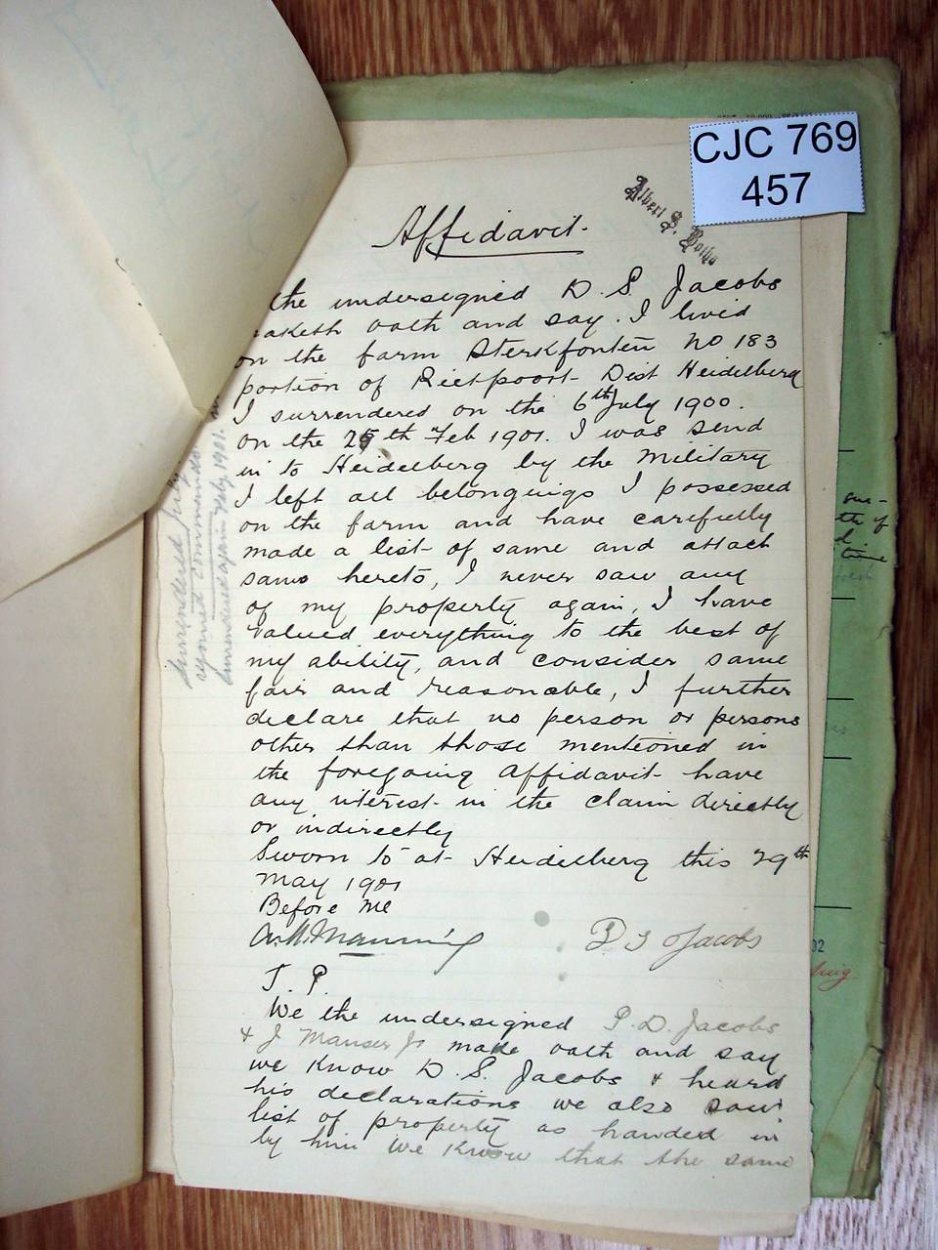 CJC 769
457
Albert S. Botha
Affidavit.
the undersigned D. S. Jacobs
maketh oath and say. I lived
on the farm Sterkfontein No 183
portion of Rietpoort Dist Heidelberg
I surrendered on the 6th July 1900.
on the 25th Feb 1901. I was send
in to Heidelberg by the Military
I left all belongings I possessed
on the farm and have carefully
made a list of same and attach
same hereto, I never saw any
of my property again, I have
valued everything to the best of
my ability, and consider same
fair and reasonable, I further
declare that no person or persons
other than those mentioned in
the foregoing affidavit have
any interest in the claim directly
or indirectly
Sworn to at Heidelberg this 29th
May 1901
Before me
Manning D S Jacobs
J. P.
We the undersigned P. D. Jacobs
& J Manser Jr made oath and say
we know D. S. Jacobs & heard
his declarations we also saw
list of property as handed in
by him We know that the same
Surrendered July
rejoined commando
surrendered again Feby 1901.